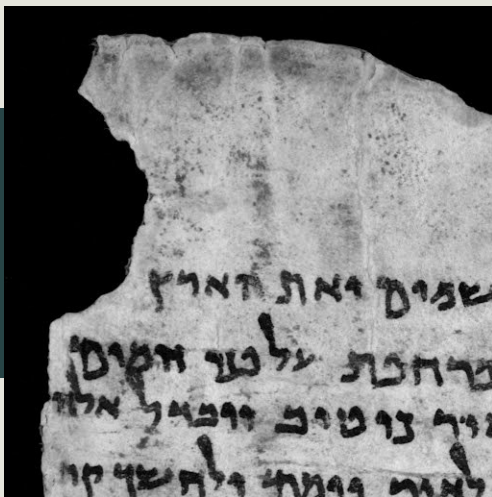 שמים ואת הארץ
מרחפת על פני המים
אור כי טוב ויבדל אלהי
לאור יומם ולחשך קר